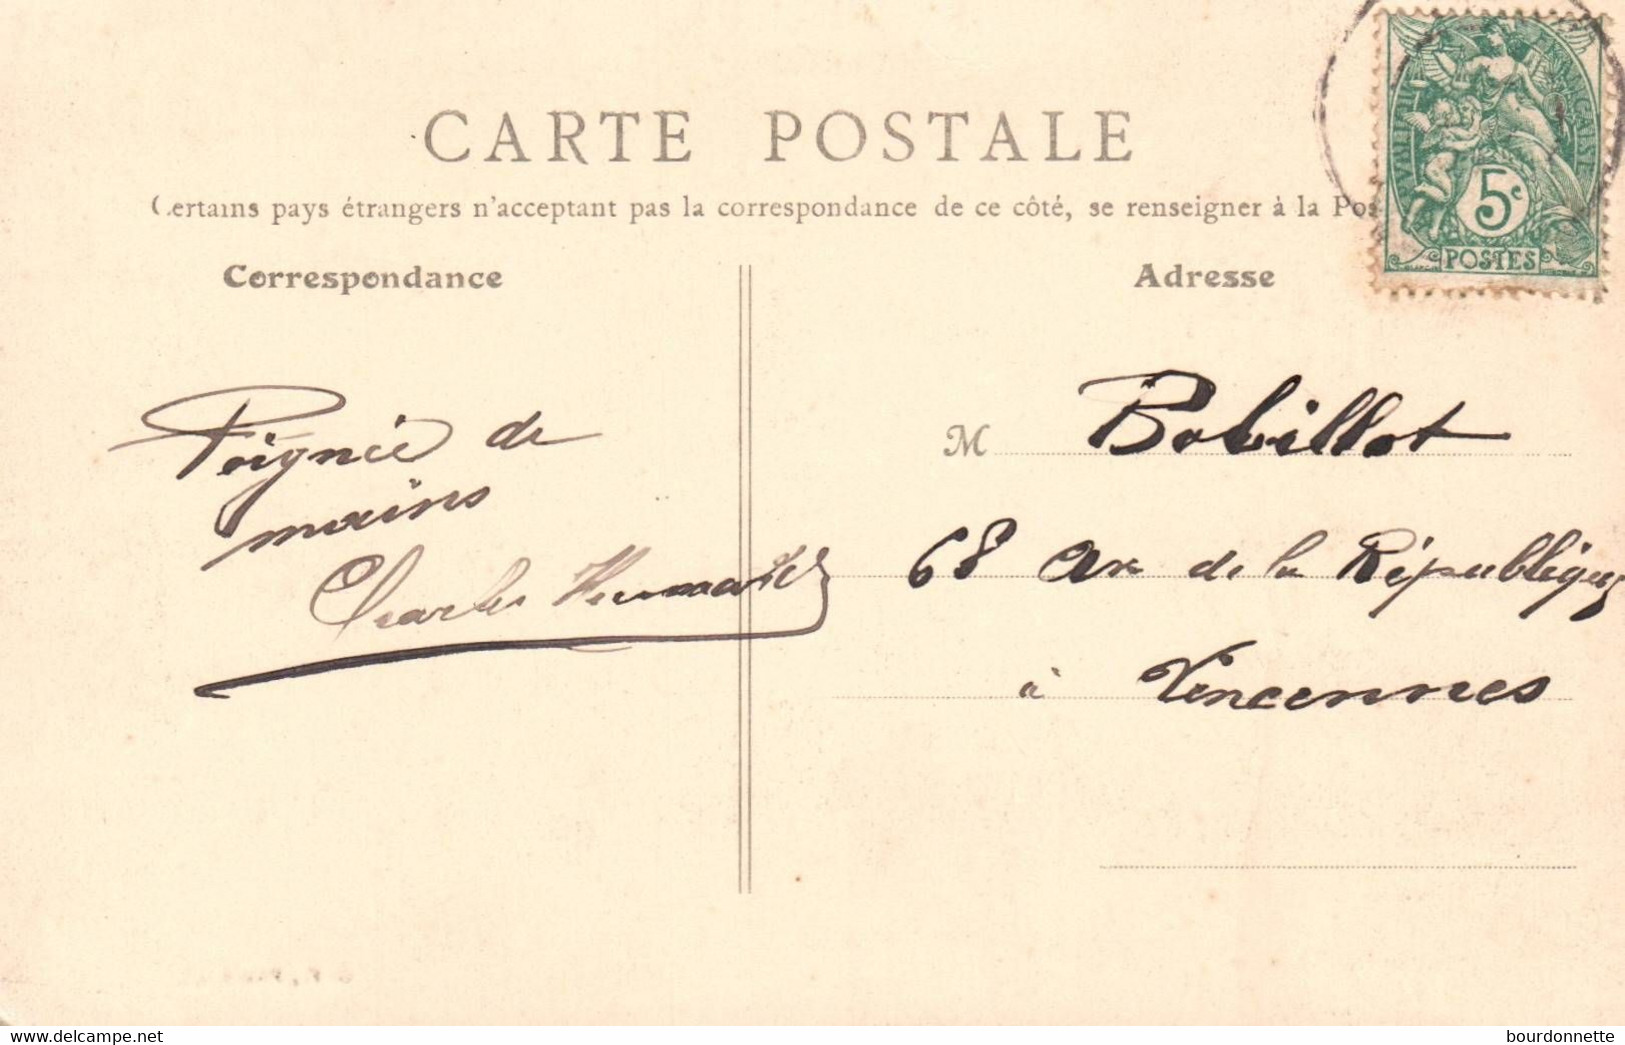 CARTE POSTALE
Certains pays étrangers n'acceptant pas la correspondance de ce côté, se renseigner à la Pos
Correspondance
Adresse
5c
POSTES
Poignée de
mains
Charles
M Bobillot
68 Av de la République
à Vincennes
delcampe.net
bourdonnette